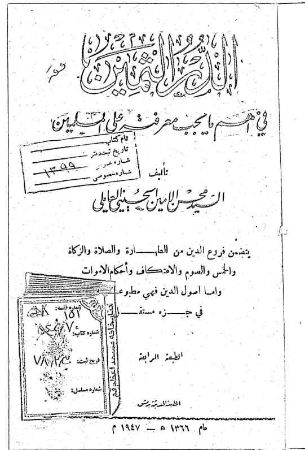 الدر الثمين
في أهم ما يجب معرفته على المسلمين
نام كتاب
تاريخ ثبت دفتر
شماره
شماره خصوصي
١٣٩٩
تأليف
السيد محسن الأمين الحسيني العاملي
يتضمن فروع الدين من الطهارة والصلاة والزكاة
والخمس والصوم والاعتكاف وأحكام الأموات
واما اصول الدين فهي مطبوعة
في جزء مستقل
شماره كتاب
تاريخ ثبت
شماره مسلسل
الطبعة الرابعة
عام ١٣٦٦ ه ١٩٤٧ م